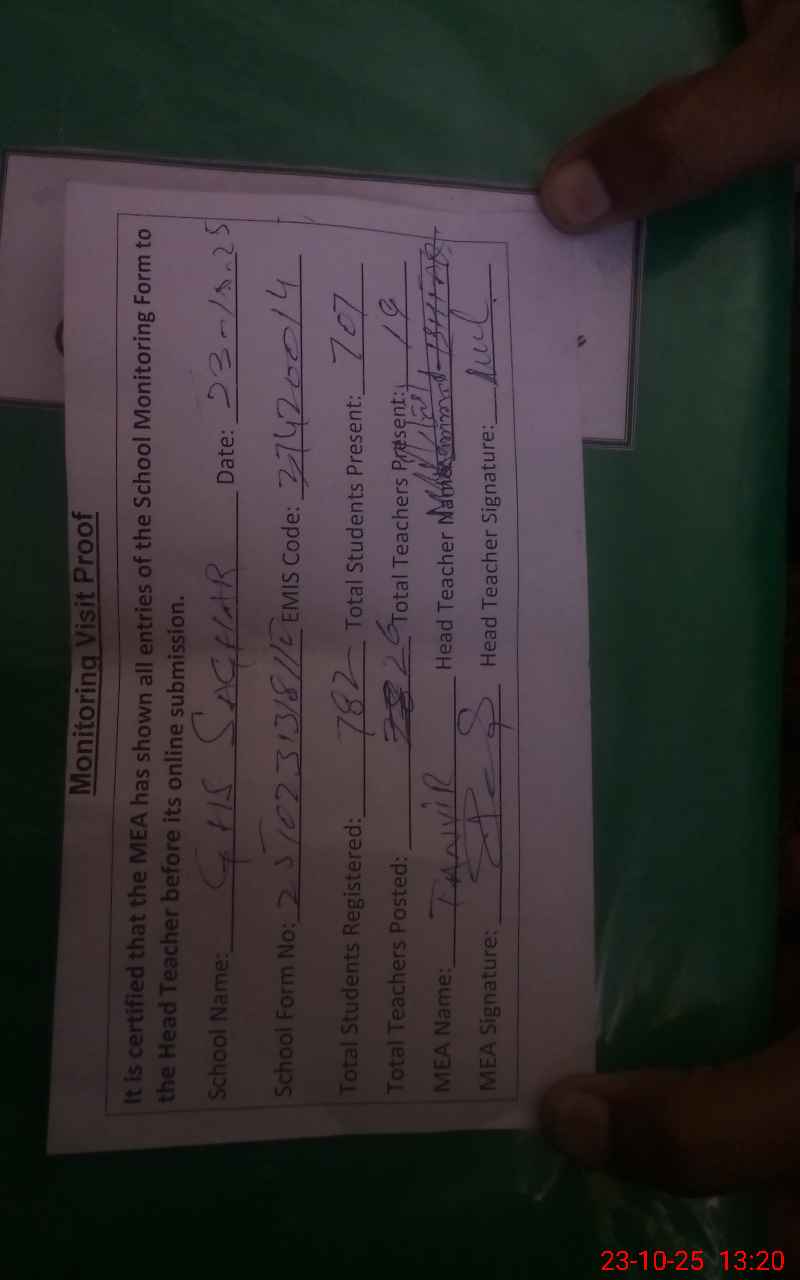 Monitoring Visit Proof
It is certified that the MEA has shown all entries of the School Monitoring Form to
the Head Teacher before its online submission.
School Name: GHS SAGHAR Date: 23-10-25
School Form No: EMIS Code: 37420014
Total Students Registered: 782 Total Students Present: 707
Total Teachers Posted: 26 Total Teachers Present: 19
MEA Name: TANVIR Head Teacher Name:
MEA Signature: Head Teacher Signature:
23-10-25 13:20